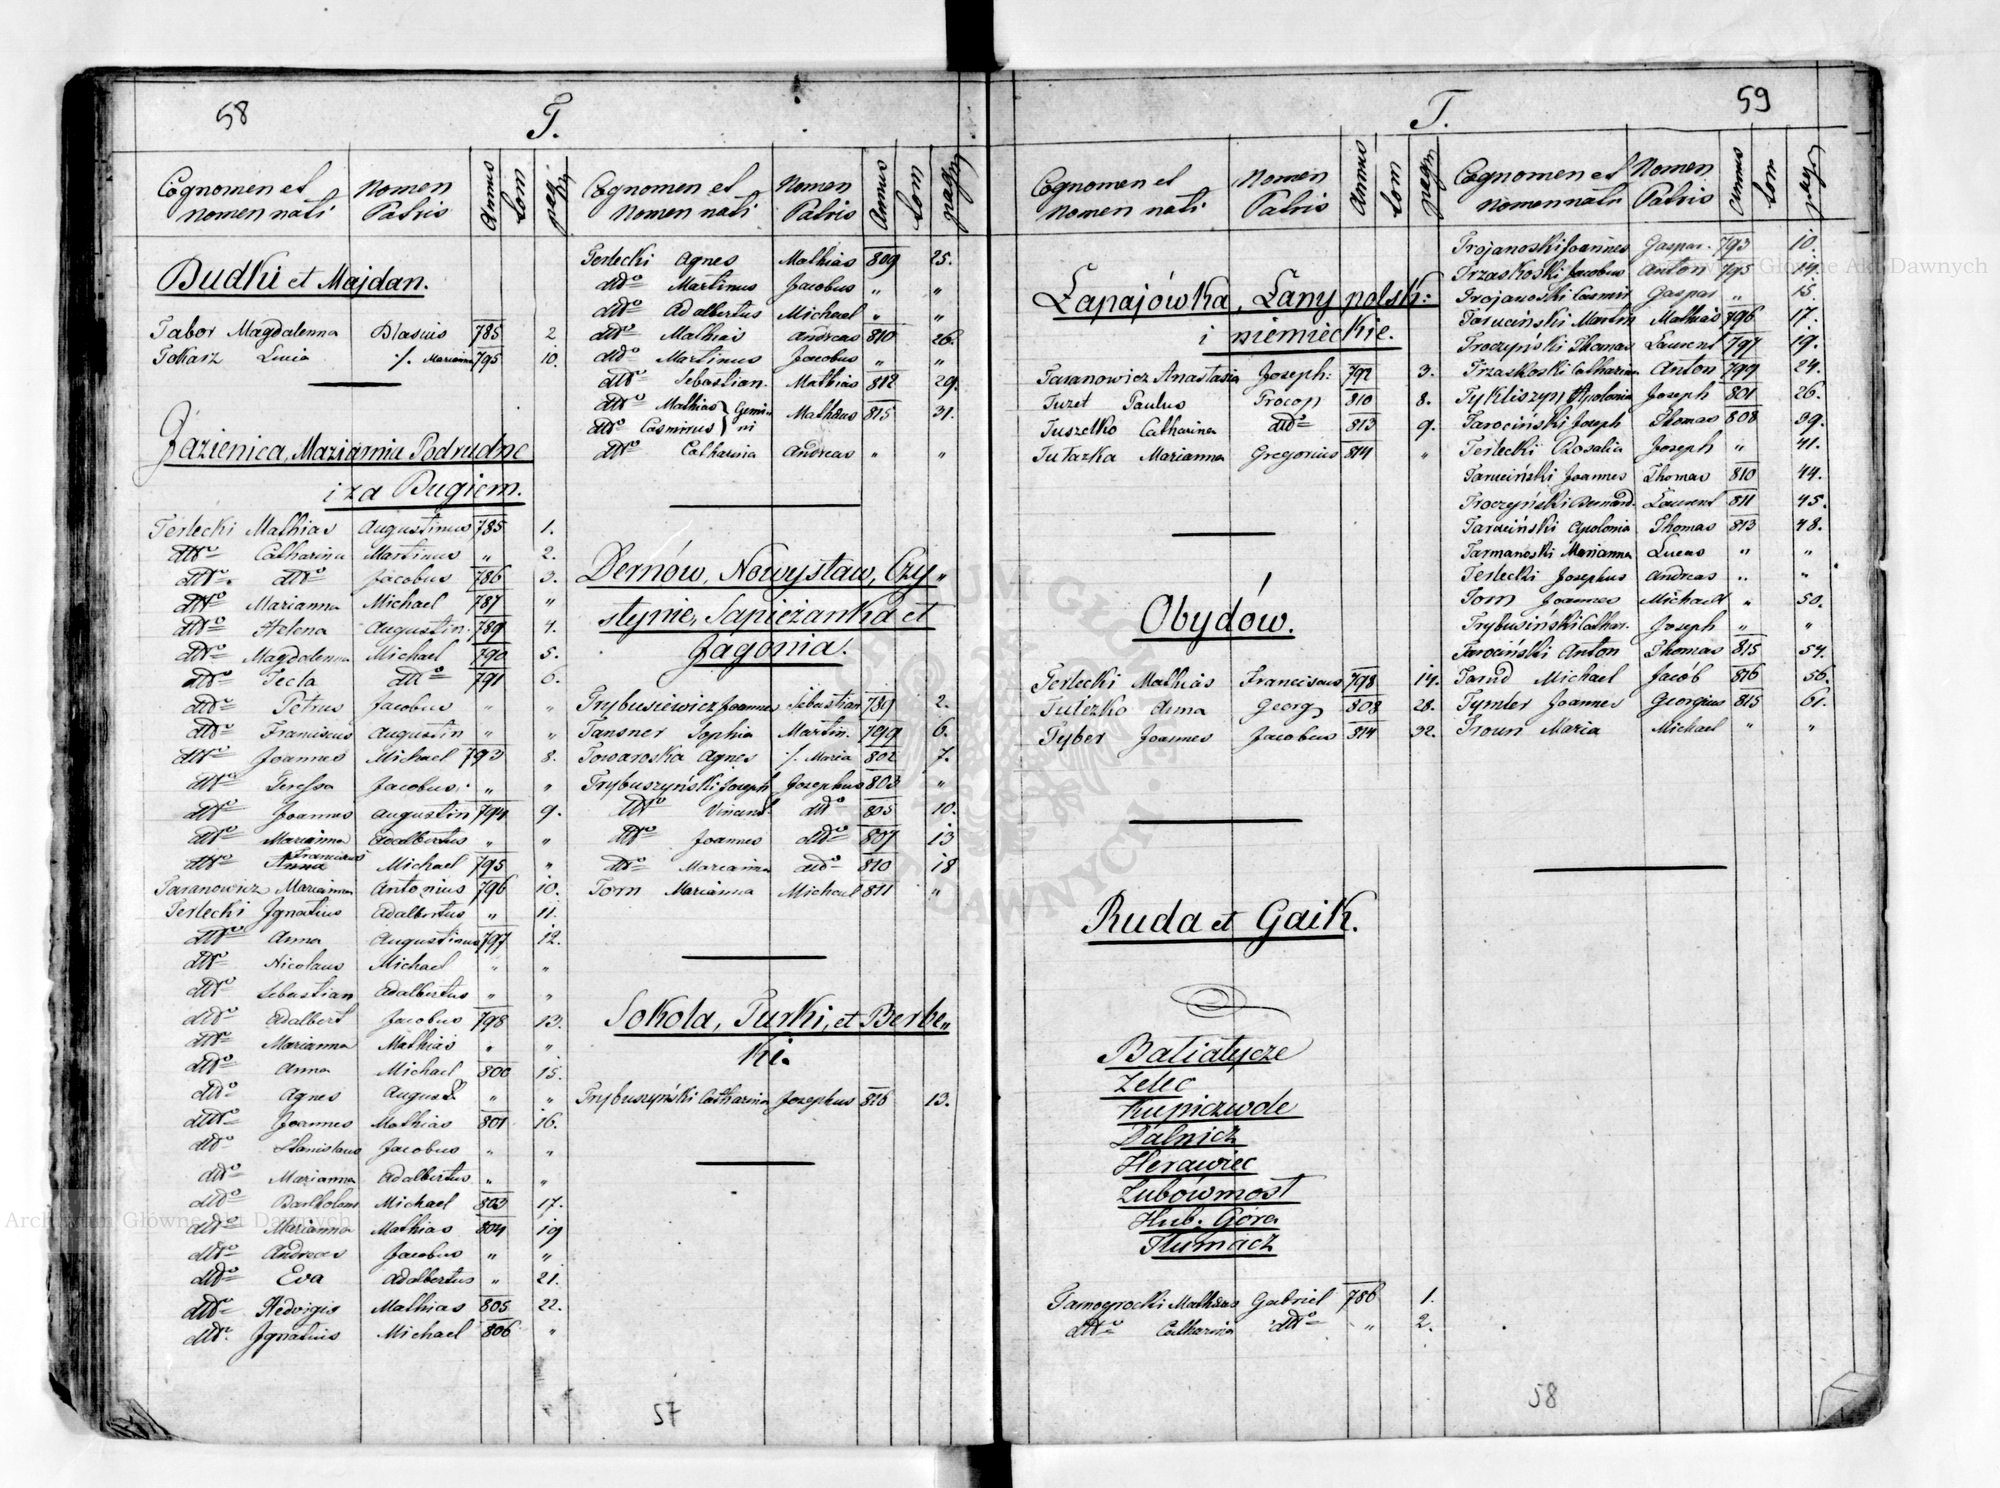 58
T.
Cognomen et nomen nati Nomen Patris Annus tom pagin
Budki et Majdan.
Tabor Magdalenna Blasius 785 2
Tokarz Lucia /. Marianna 795 10.
Jazienica, Maziarnia Podrudne
i za Bugiem.
Terlecki Mathias Augustinus 785 1.
dtto Catharina Martinus " 2.
dtto dtto Jacobus 786 3.
dtto Marianna Michael 787 "
dtto Helena Augustin. 789 4.
dtto Magdalenna Michael 790 5.
dtto Tecla dtto 791 6.
dtto Petrus Jacobus " "
dtto Franciscus Augustin " "
dtto Joannes Michael 793 8.
dtto Teressa Jacobus. " "
dtto Joannes Augustin 794 9.
dtto Marianna Adalbertus " "
dtto Franciscus Michael 795 "
Taranowicz Marianna Antonius 796 10.
Terlecki Ignatius Adalbertus " 11.
dtto Anna Augustinus 797 12.
dtto Nicolaus Michael " "
dtto Sebastian Adalbertus " "
dtto Adalbert Jacobus 798 13.
dtto Marianna Mathias " "
dtto Anna Michael 800 15.
dtto Agnes August " "
dtto Joannes Mathias 801 16.
dtto Stanislaus Jacobus " "
dtto Marianna Adalbertus " "
dtto Bartholom Michael 803 17.
dtto Marianna Mathias 804 19
dtto Andreas Jacobus " "
dtto Eva Adalbertus " 21.
dtto Hedvigis Mathias 805 22.
dtto Ignatius Michael 806 "
Cognomen et Nomen nati Nomen Patris Annus tom pagin
Terlecki Agnes Mathias 809 25.
dtto Martinus Jacobus " "
dtto Adalbertus Michael " "
dtto Mathias Andreas 810 26.
dtto Martinus Jacobus " "
dtto Sebastian. Mathias 812 29.
dtto Mathias } Gemi Mathaus 815 31.
dtto Casmirus } ni
dtto Catharina Andreas " "
Dernów, Nowystaw, Czy„
stynie, Sapieżanka et
Jagonia.
Trybusiewicz Joannes Sebastian 789 2.
Tansner Sophia Martin. 799 6.
Towaroska Agnes /. Maria 802 7.
Trybuszyński Joseph Josephus 803 "
dtto Vincent. dtto 805 10.
dtto Joannes dtto 807 13
dtto Marianna dtto 810 18
Torn Marianna Michael 811 "
Sokola, Turki, et Berbe„
ki.
Trybuszyński Catharina Josephus 816 13.
57
59
T.
Cognomen et nomen nati Nomen Patris Annus tom pagin
Łapajówka, Łany polsk:
i niemieckie.
Taranowicz Anastasia Joseph: 792 3.
Tuzet Paulus Procop 810 8.
Tuszelko Catharina dtto 813 9.
Tutazka Marianna Gregorius 814 "
Obydów.
Terlecki Mathias Franciscus 798 14.
Tutezko Anna Georg 808 28.
Tyber Joannes Jacobus 814 32.
Ruda et Gaik.
Batiatycze
Zelec
Kupiczwole
Dalnicz
Herawiec
Lubówmost
Hub. Góra
Tłumacz
Tamogrocki Mathaus Gabriel 786 1.
dtto Catharina dtto " 2.
Cognomen et nomen nati Nomen Patris Annus tom pagin
Trojanoski Joannes Gaspar. 793 10.
Trzaskoski Jacobus Anton 795 14.
Trojanoski Casmir Gaspar " 15.
Taruciński Martin Mathias 796 17.
Troczyński Thomas Laurent 797 19.
Trzaskoski Catharina Anton 799 24.
Tykliszyn Apolonia Joseph 801 26.
Tarociński Joseph Thomas 808 39.
Terlecki Rosalia Joseph " 41.
Taruciński Joannes Thomas 810 44.
Troczyński Bernard. Laurent 811 45.
Taruciński Apolonia Thomas 813 48.
Tarmanoski Marianna Lucas " "
Terlecki Josephus Andreas " "
Torn Joannes Michael " 50.
Trybusiński Cathar. Joseph " "
Tarociński Anton Thomas 815 54.
Tarnd Michael Jacób 816 56.
Tymler Joannes Georgius 815 61.
Troun Maria Michael " "
58
Archiwum Główne Akt Dawnych